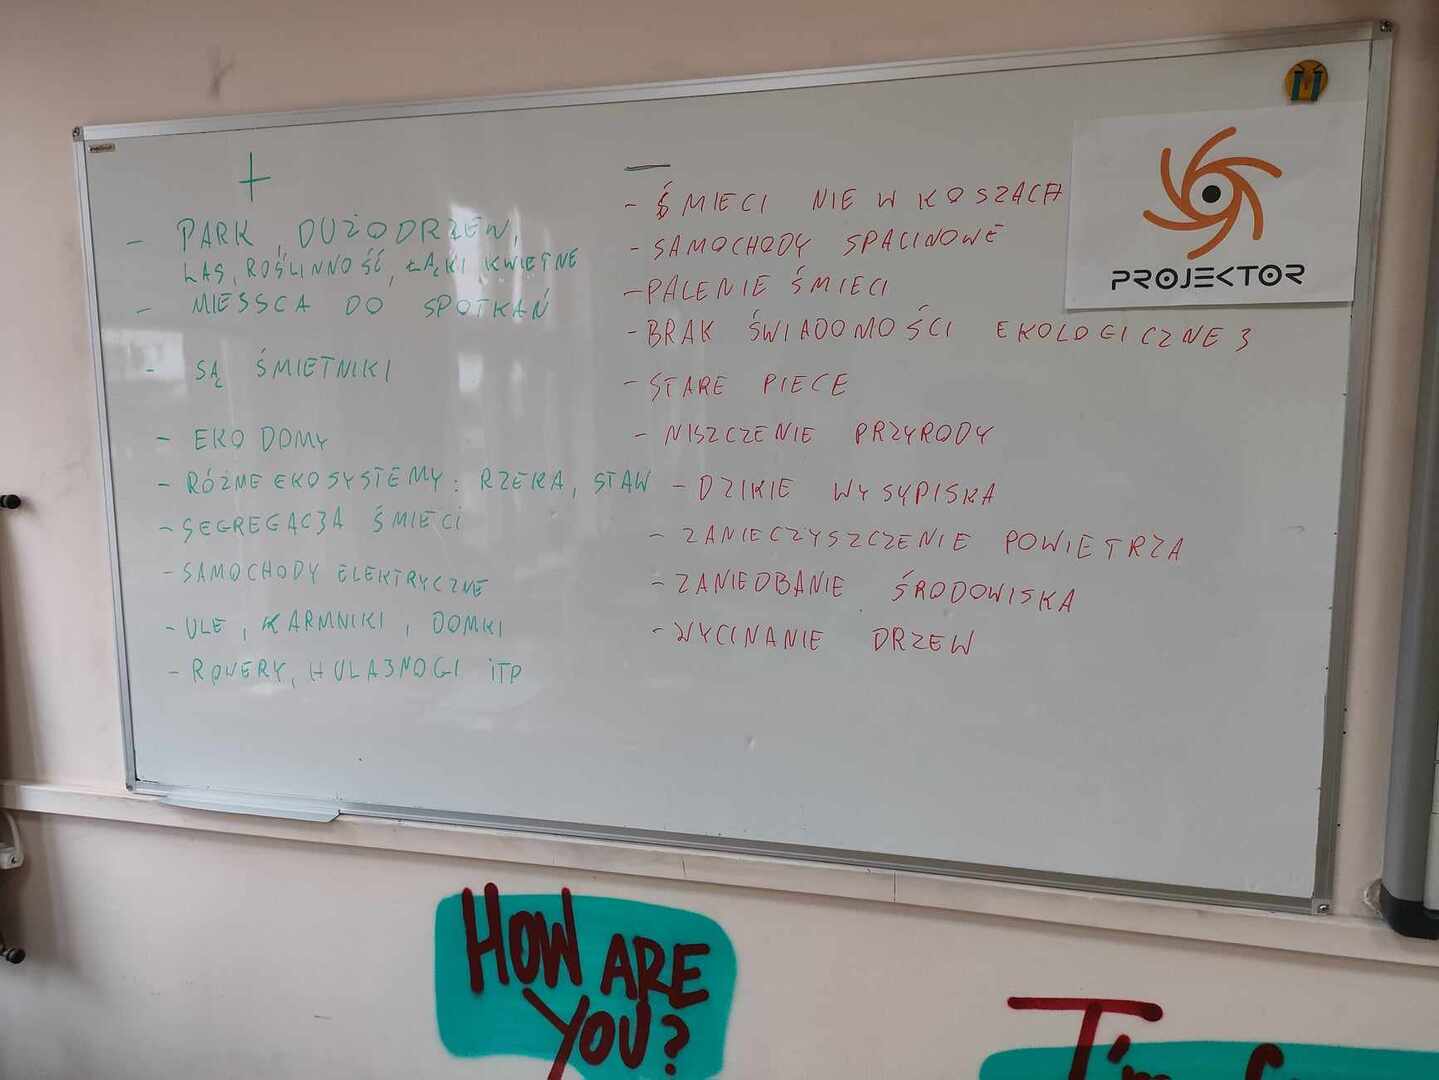 +
- PARK, DUŻO DRZEW,
LAS, ROŚLINNOŚĆ, ŁĄKI KWIETNE
- MIESSCA DO SPOTKAŃ
- SĄ ŚMIETNIKI
- EKO DOMY
- RÓŻNE EKOSYSTEMY: RZEKA, STAW
- SEGREGACJA ŚMIECI
- SAMOCHODY ELEKTRYCZNE
- ULE, KARMNIKI, DOMKI
- ROWERY, HULAJNOGI ITP
—
- ŚMIECI NIE W KOSZACH
- SAMOCHODY SPALINOWE
- PALENIE ŚMIECI
- BRAK ŚWIADOMOŚCI EKOLOGICZNEJ
- STARE PIECE
- NISZCZENIE PRZYRODY
- DZIKIE WYSYPISKA
- ZANIECZYSZCZENIE POWIETRZA
- ZANIEDBANIE ŚRODOWISKA
- WYCINANIE DRZEW
PROJEKTOR
HOW ARE
YOU?
I'm